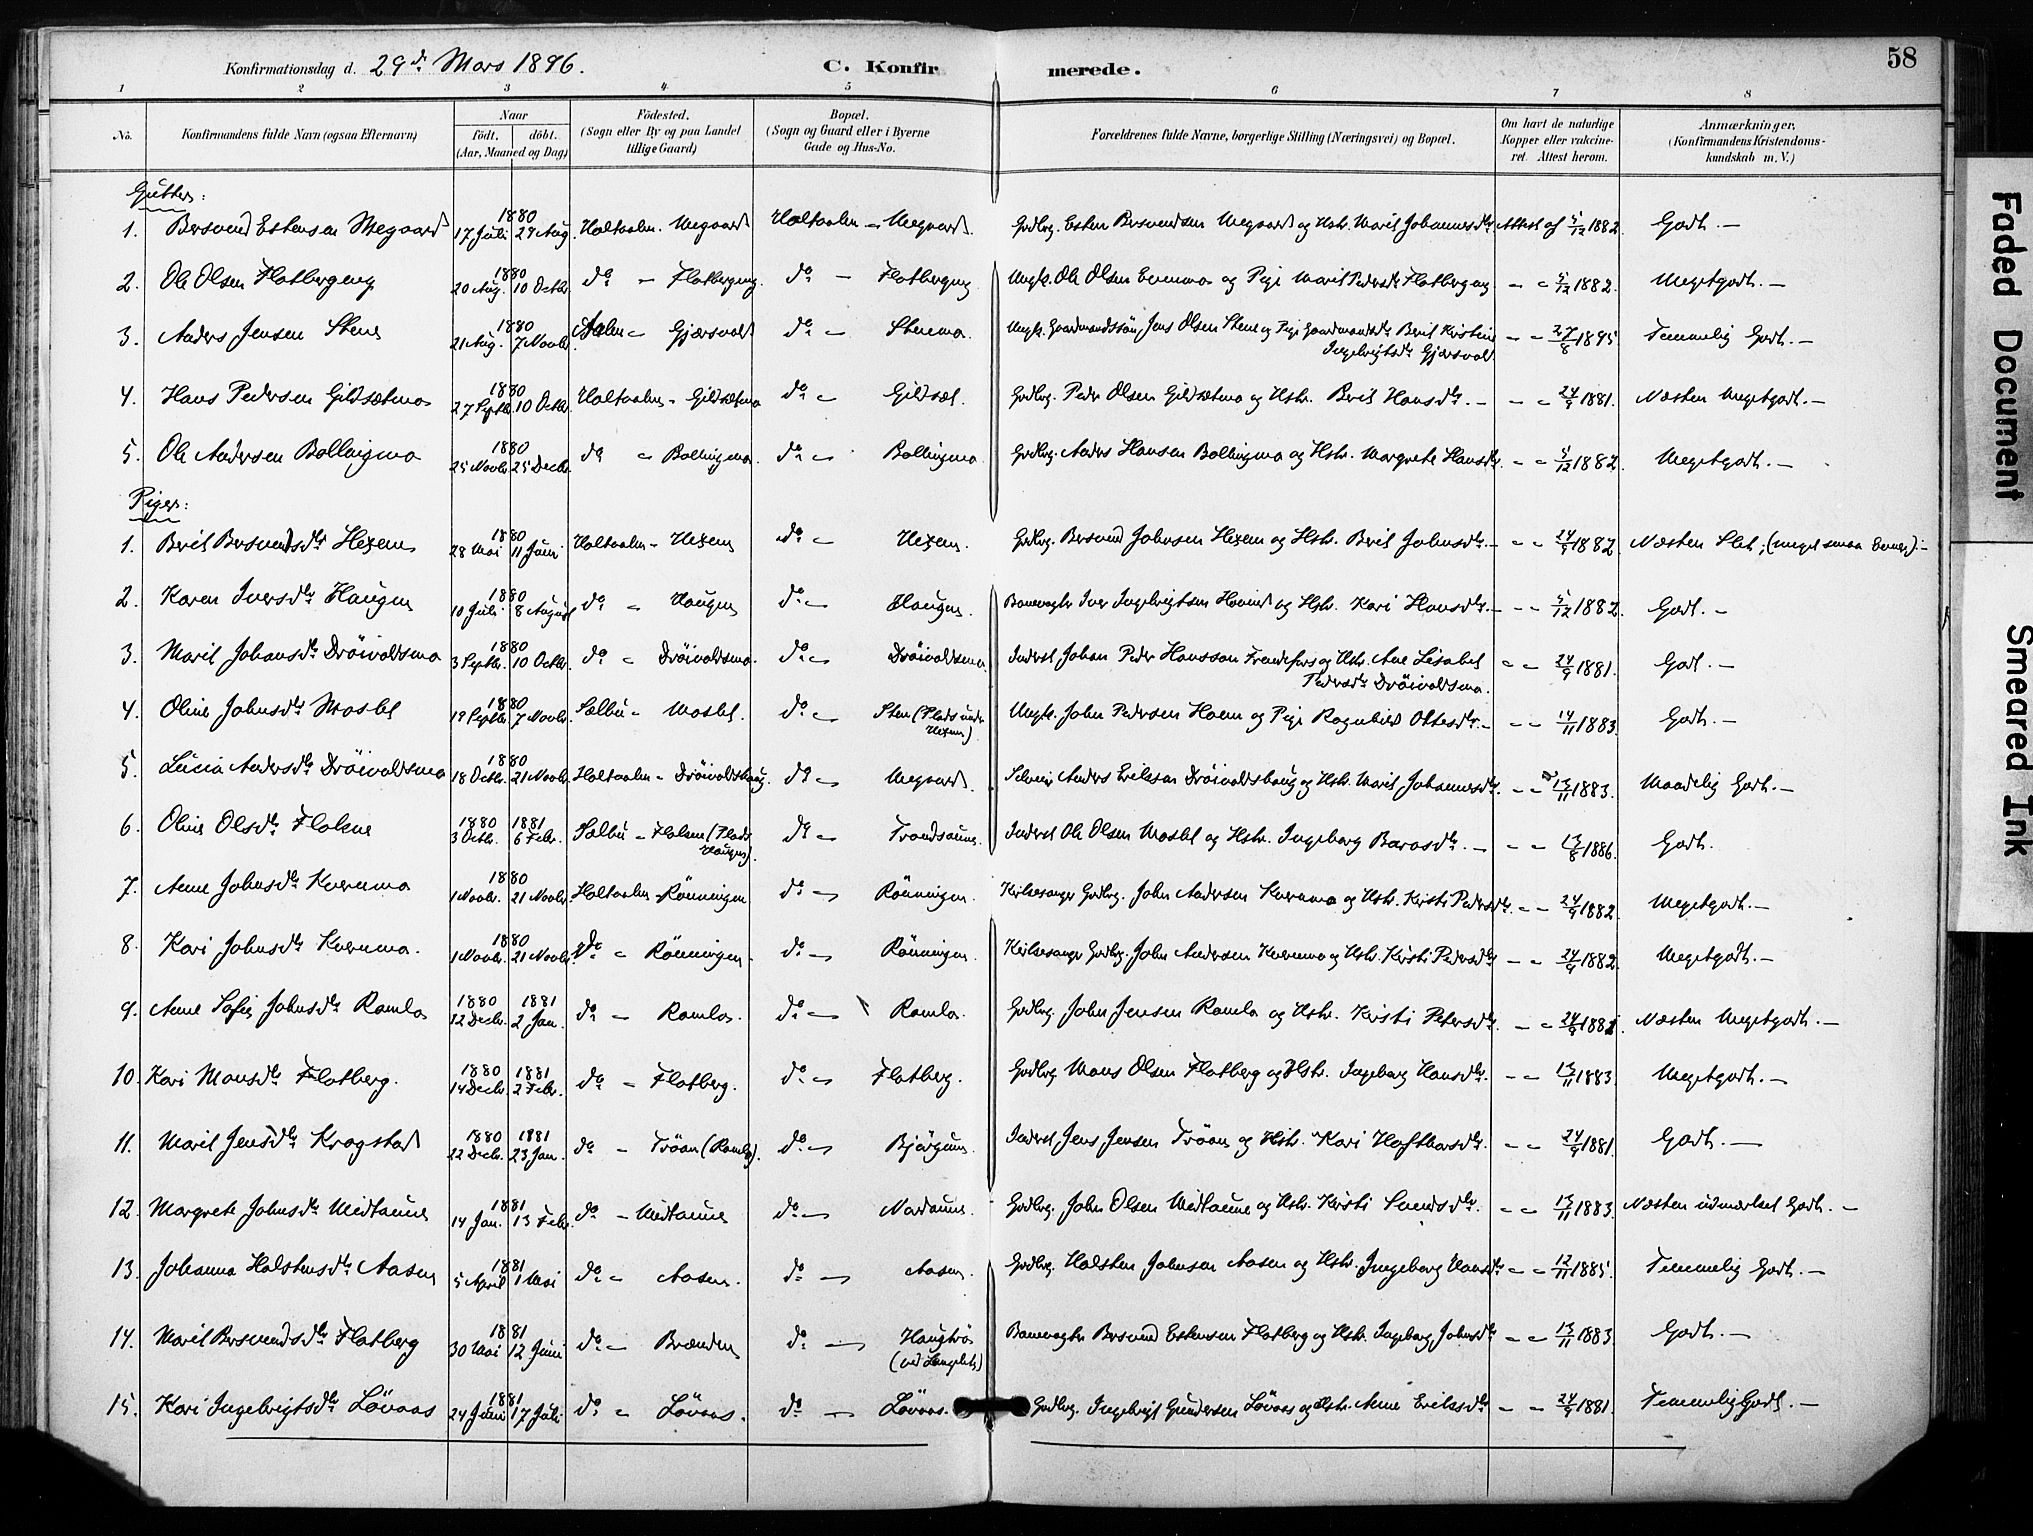 Konfirmationsdag d. 29d. Mars 1896. C. Konfirmerede. 58
1 2 3 4 5 6 7 8
No. Konfirmandens fulde Navn (ogsaa Efternavn) Naar födt. döbt. (Aar, Maaned og Dag) Födested. (Sogn eller By og paa Landet tillige Gaard) Bopæl. (Sogn og Gaard eller i Byerne Gade og Hus-No. Forældrenes fulde Navne, borgerlige Stilling (Næringsvei) og Bopæl. Om havt de naturlige Kopper eller vakcineret. Attest herom. Anmærkninger. (Konfirmandens Kristendomskundskab m. V.)
Gutter:
1. Bersvend Estensen Megaard 1880 17 Juli 29 Aug. Holtaalen - Megaard Holtaalen - Megaard. Gbrbrg. Esten Bersvendsen Megaard og Hstr. Marit Johannesdtr Attest af 5/12 1882 Godt. -
2. Ole Olsen Flatbergeng 1880 20 Aug. 10 Octbr. do - Flatbergeng. do - Flatbergeng Ungk. Ole Olsen Evenmo og Pige Marit Pedersdtr Flatbergeng - - 5/12 1882. Megetgodt. -
3. Anders Jensen Stene 1880 21 Aug. 7 Novbr. Aalen - Gjærsvold do - Stenmo. Ungk. Gaardmandssön Jens Olsen Stene og Pige Gaardmandsdtr Berit Kristine Ingebrigtsdtr Gjærsvold - - 27/8 1895 Temmelig Godt. -
4. Hans Pedersen Gildsætmo 1880 27 Septbr. 10 Octbr. Holtaalen - Gildsætmo do - Gildset. Gbrbrg. Peder Olsen Gildsætmo og Hstr. Berit Hansdtr. - - - 24/9 1881. Næsten Megetgodt. -
5. Ole Andersen Bollingmo 1880 25 Novbr. 25 Decbr. do - Bollingmo. do - Bollingmo Gbrbrg. Anders Hansen Bollingmo og Hstr. Margrete Hansdtr. - - 5/12 1882. Megetgodt. -
Piger:
1. Berit Bersvendsdtr Hexem 1880 28 Mai 11 Juni Holtaalen - Hexem do - Hexem. Gbrbrg. Bersvend Johnsen Hexem og Hstr. Berit Johnsdtr. - - - 24/9 1882 Næsten Slet; (meget smaa Evner). -
2. Karen Iversdtr Haugen 1880 10 Juli 8 August do - Haugen do - Haugen. Banevogter Iver Ingebrigtsen Hovind og Hstr. Kari Hansdtr. - - - 5/12 1882. Godt. -
3. Marit Johansdtr Dröivoldsmo 1880 3 Septbr. 10 Octbr. do - Dröivoldsmo. do - Dröivoldsmo. Inderst Johan Peder Hansson og Hstr. Ane Lisabet Pedersdtr Dröivoldsmo. - - 24/9 1881. Godt. -
4. Oline Johnsdtr Moslet 1880 19 Septbr. 7 Novbr. Sælbu - Moslet. do - Sten (Plads under Hexem) Ungk. John Pedersen Hoem og Pige Ragnhild Ottesdtr. - - - 14/11 1883. Godt. -
5. Lucia Andersdtr Dröivoldsmo 1880 18 Octbr. 21 Novbr. Holtaalen - Dröivoldshaug. do - Megaard. Selveier Anders Eriksen Dröivoldshaug og Hstr. Marit Johannesdtr. - - 13/11 1883. Maadelig Godt. -
6. Oline Olsdtr Flakne 1880 3 Octbr. 1881 6 Febr. Sælbu - Flakne (Plads Haugen). do - Trondsaune. Inderst Ole Olsen Moslet og Hstr. Ingeborg Baroedtr. - - - 13/8 1886. Godt.
7. Anne Johnsdtr Kvernmo 1880 1 Novbr. 21 Novbr. Holtaalen - Rönningen do - Rönningen. Kirkesanger Gbrbrg. John Andersen Kvernmo og Hstr. Kristi Pedersdtr - - 24/9 1882. Megetgodt. -
8. Kari Johnsdtr Kvernmo. 1880 1 Novbr. 21 Novbr. do - Rönningen. do - Rönningen. Kirkesanger Gbrbrg. John Andersen Kvernmo og Hstr. Kristi Pedersdtr - - 24/9 1882. Megetgodt. -
9. Anne Sofie Johnsdtr Ramlo 1880 12 Decbr. 1881 2 Jan. do - Ramlo. do - Ramlo. Gbrbrg. John Jensen Ramlo og Hstr. Kristi Petersdtr. - - 24/9 1881. Næsten Megetgodt. -
10. Kari Monsdtr Flatberg. 1880 14 Decbr. 1881 2 Febr. do - Flatberg. do - Flatberg. Gbrbrg Mons Olsen Flatberg og Hstr. Ingeborg Hansdtr. - - 13/11 1883. Megetgodt. -
11. Marit Jensdtr Krogstad 1880 22 Decbr. 1881 23 Jan. do - Tröan (Ramlo). do - Bjørgum. Inderst Jens Jensen Tröan og Hstr. Kari Hafthorsdtr. - - 24/9 1881. Godt. -
12. Margrete Johnsdtr Midtaune 1881 14 Jan. 13 Febr. do - Midtaune do - Nordaune. Gbrbrg. John Olsen Midtaune og Hstr. Kirsti Svendsdtr. - - 13/11 1883. Næsten udmærket Godt. -
13. Johanna Halstensdtr Aasen 1881 5 April 1 Mai do - Aasen. do - Aasen. Gbrbrg. Halsten Johnsen Aasen og Hstr. Ingeborg Hansdtr - - 12/11 1885. Temmelig Godt. -
14. Marit Bersvendsdtr Flatberg 1881 30 Mai 12 Juni do - Brænden do - Haugtrö (ved Langlete) Banevogter Bersvend Estensen Flatberg og Hstr. Ingeborg Johnsdtr - - 13/11 1883. Godt. -
15. Kari Ingebrigtsdtr Lövaas 1881 24 Juni 17 Juli do - Lövaas. do - Lövaas. Gbrbrg. Ingebrigt Gundersen Lövaas og Hstr. Anne Eriksdtr - - 24/9 1881. Temmelig Godt. -
Faded Document
Smeared Ink